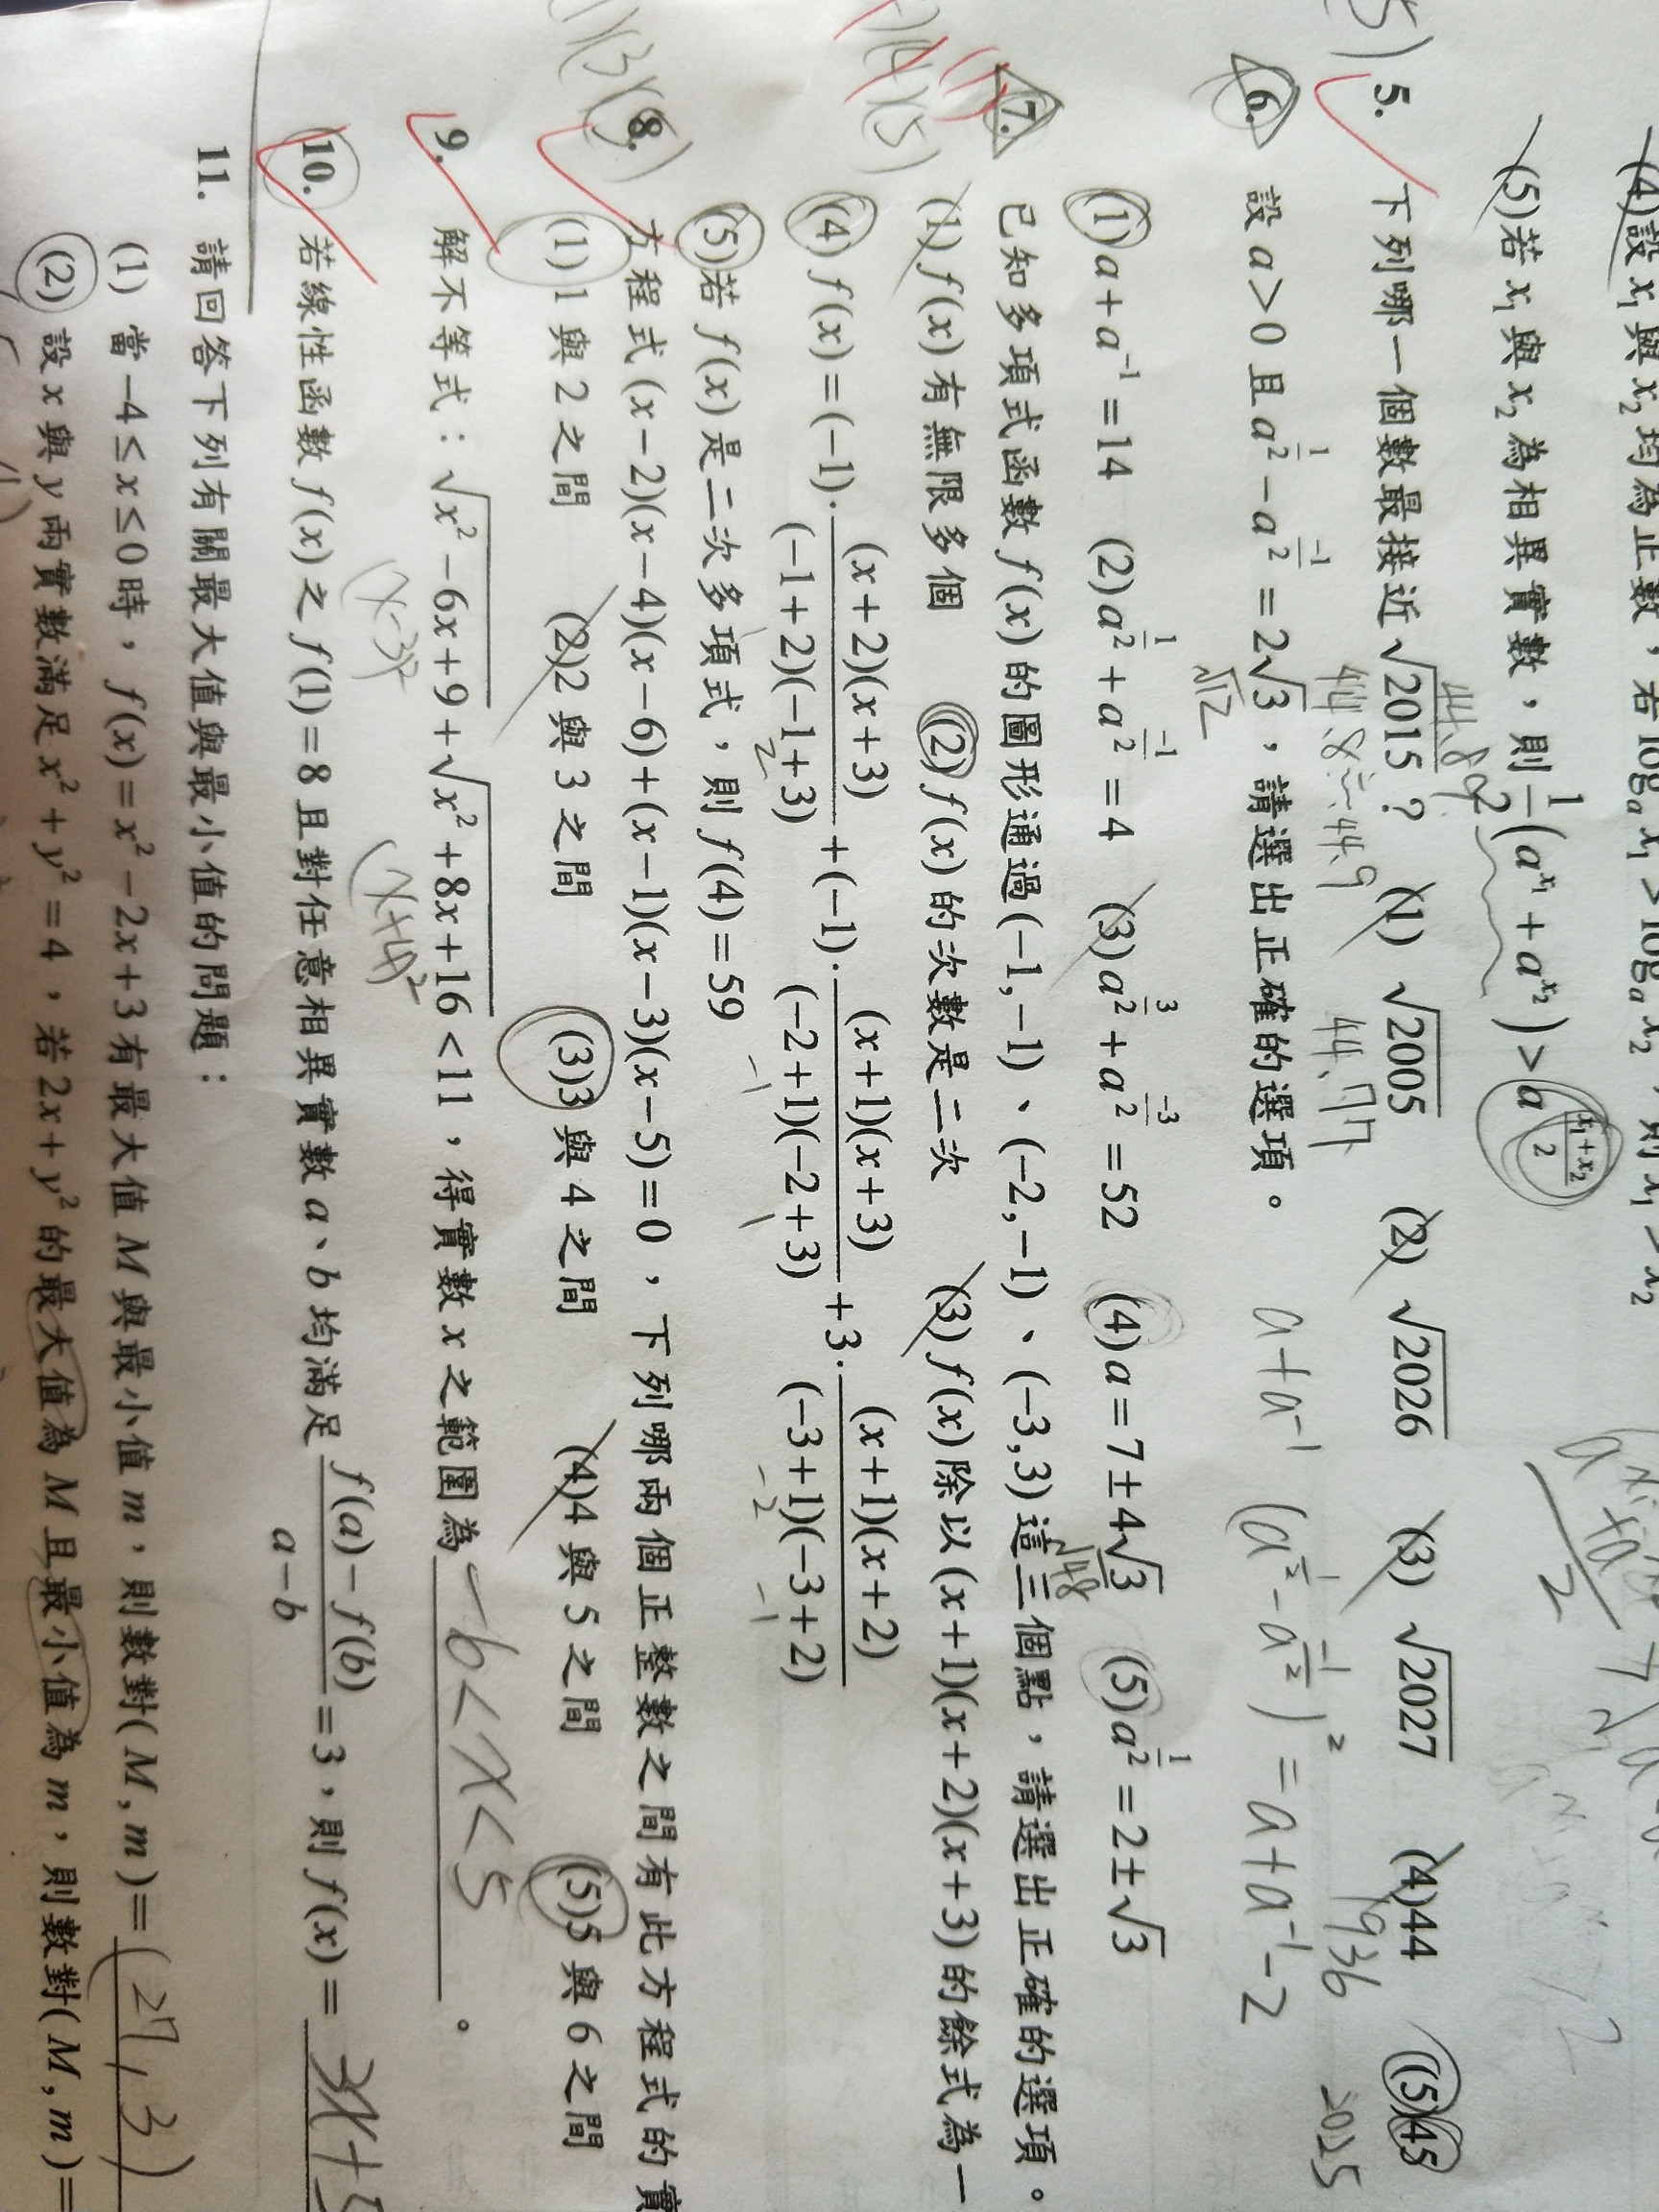 (4)設 x₁ 與 x₂ 均為正數，若 logₐ x₁ > logₐ x₂，則 x₁ > x₂
(5)若 x₁ 與 x₂ 為相異實數，則 1/2 (a^x₁ + a^x₂) > a^((x₁+x₂)/2)
44.89
5. 下列哪一個數最接近 √2015？ (1) √2005 (2) √2026 (3) √2027 (4)44 (5)45
44.8~44.9 44.77 1936 2025
6. 設 a > 0 且 a^(1/2) − a^(−1/2) = 2√3，請選出正確的選項。 a+a⁻¹ (a^(1/2) − a^(−1/2))² = a+a⁻¹−2
√12
(1) a + a⁻¹ = 14 (2) a^(1/2) + a^(−1/2) = 4 (3) a^(3/2) + a^(−3/2) = 52 (4) a = 7 ± 4√3 (5) a^(1/2) = 2 ± √3
√48
7. 已知多項式函數 f(x) 的圖形通過(−1,−1)、(−2,−1)、(−3,3)這三個點，請選出正確的選項。
(1) f(x) 有無限多個 (2) f(x) 的次數是二次 (3) f(x) 除以 (x+1)(x+2)(x+3) 的餘式為一
(4) f(x) = (−1)·(x+2)(x+3)/(−1+2)(−1+3) + (−1)·(x+1)(x+3)/(−2+1)(−2+3) + 3·(x+1)(x+2)/(−3+1)(−3+2)
1 2 −1 1 −2 −1
(5)若 f(x) 是二次多項式，則 f(4) = 59
8. 方程式 (x−2)(x−4)(x−6)+(x−1)(x−3)(x−5)=0，下列哪兩個正整數之間有此方程式的實
(1)1 與 2 之間 (2)2 與 3 之間 (3)3 與 4 之間 (4)4 與 5 之間 (5)5 與 6 之間
9. 解不等式：√(x²−6x+9) + √(x²+8x+16) < 11，得實數 x 之範圍為 −6<x<5 。
(x-3)² (x+4)²
10. 若線性函數 f(x) 之 f(1) = 8 且對任意相異實數 a、b 均滿足 (f(a)−f(b))/(a−b) = 3，則 f(x) = 3x+5
11. 請回答下列有關最大值與最小值的問題：
(1) 當 −4 ≤ x ≤ 0 時，f(x) = x² − 2x + 3 有最大值 M 與最小值 m，則數對(M, m) = (27, 3)
(2) 設 x 與 y 兩實數滿足 x² + y² = 4，若 2x + y² 的最大值為 M 且最小值為 m，則數對(M, m) =